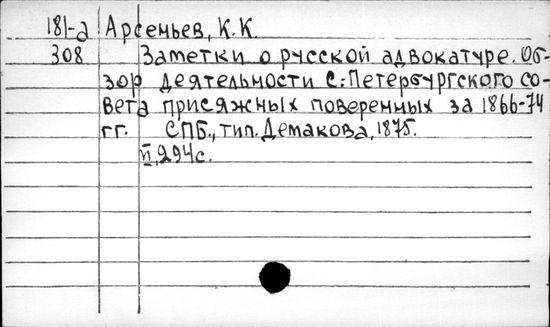 181-д Арсеньев, К.К.
308 Заметки о русской адвокатуре. Об-
зор деятельности С.-Петербургского со-
вета присяжных поверенных за 1866-74
гг. СПБ., тип. Демакова, 1875.
VI, 294с.